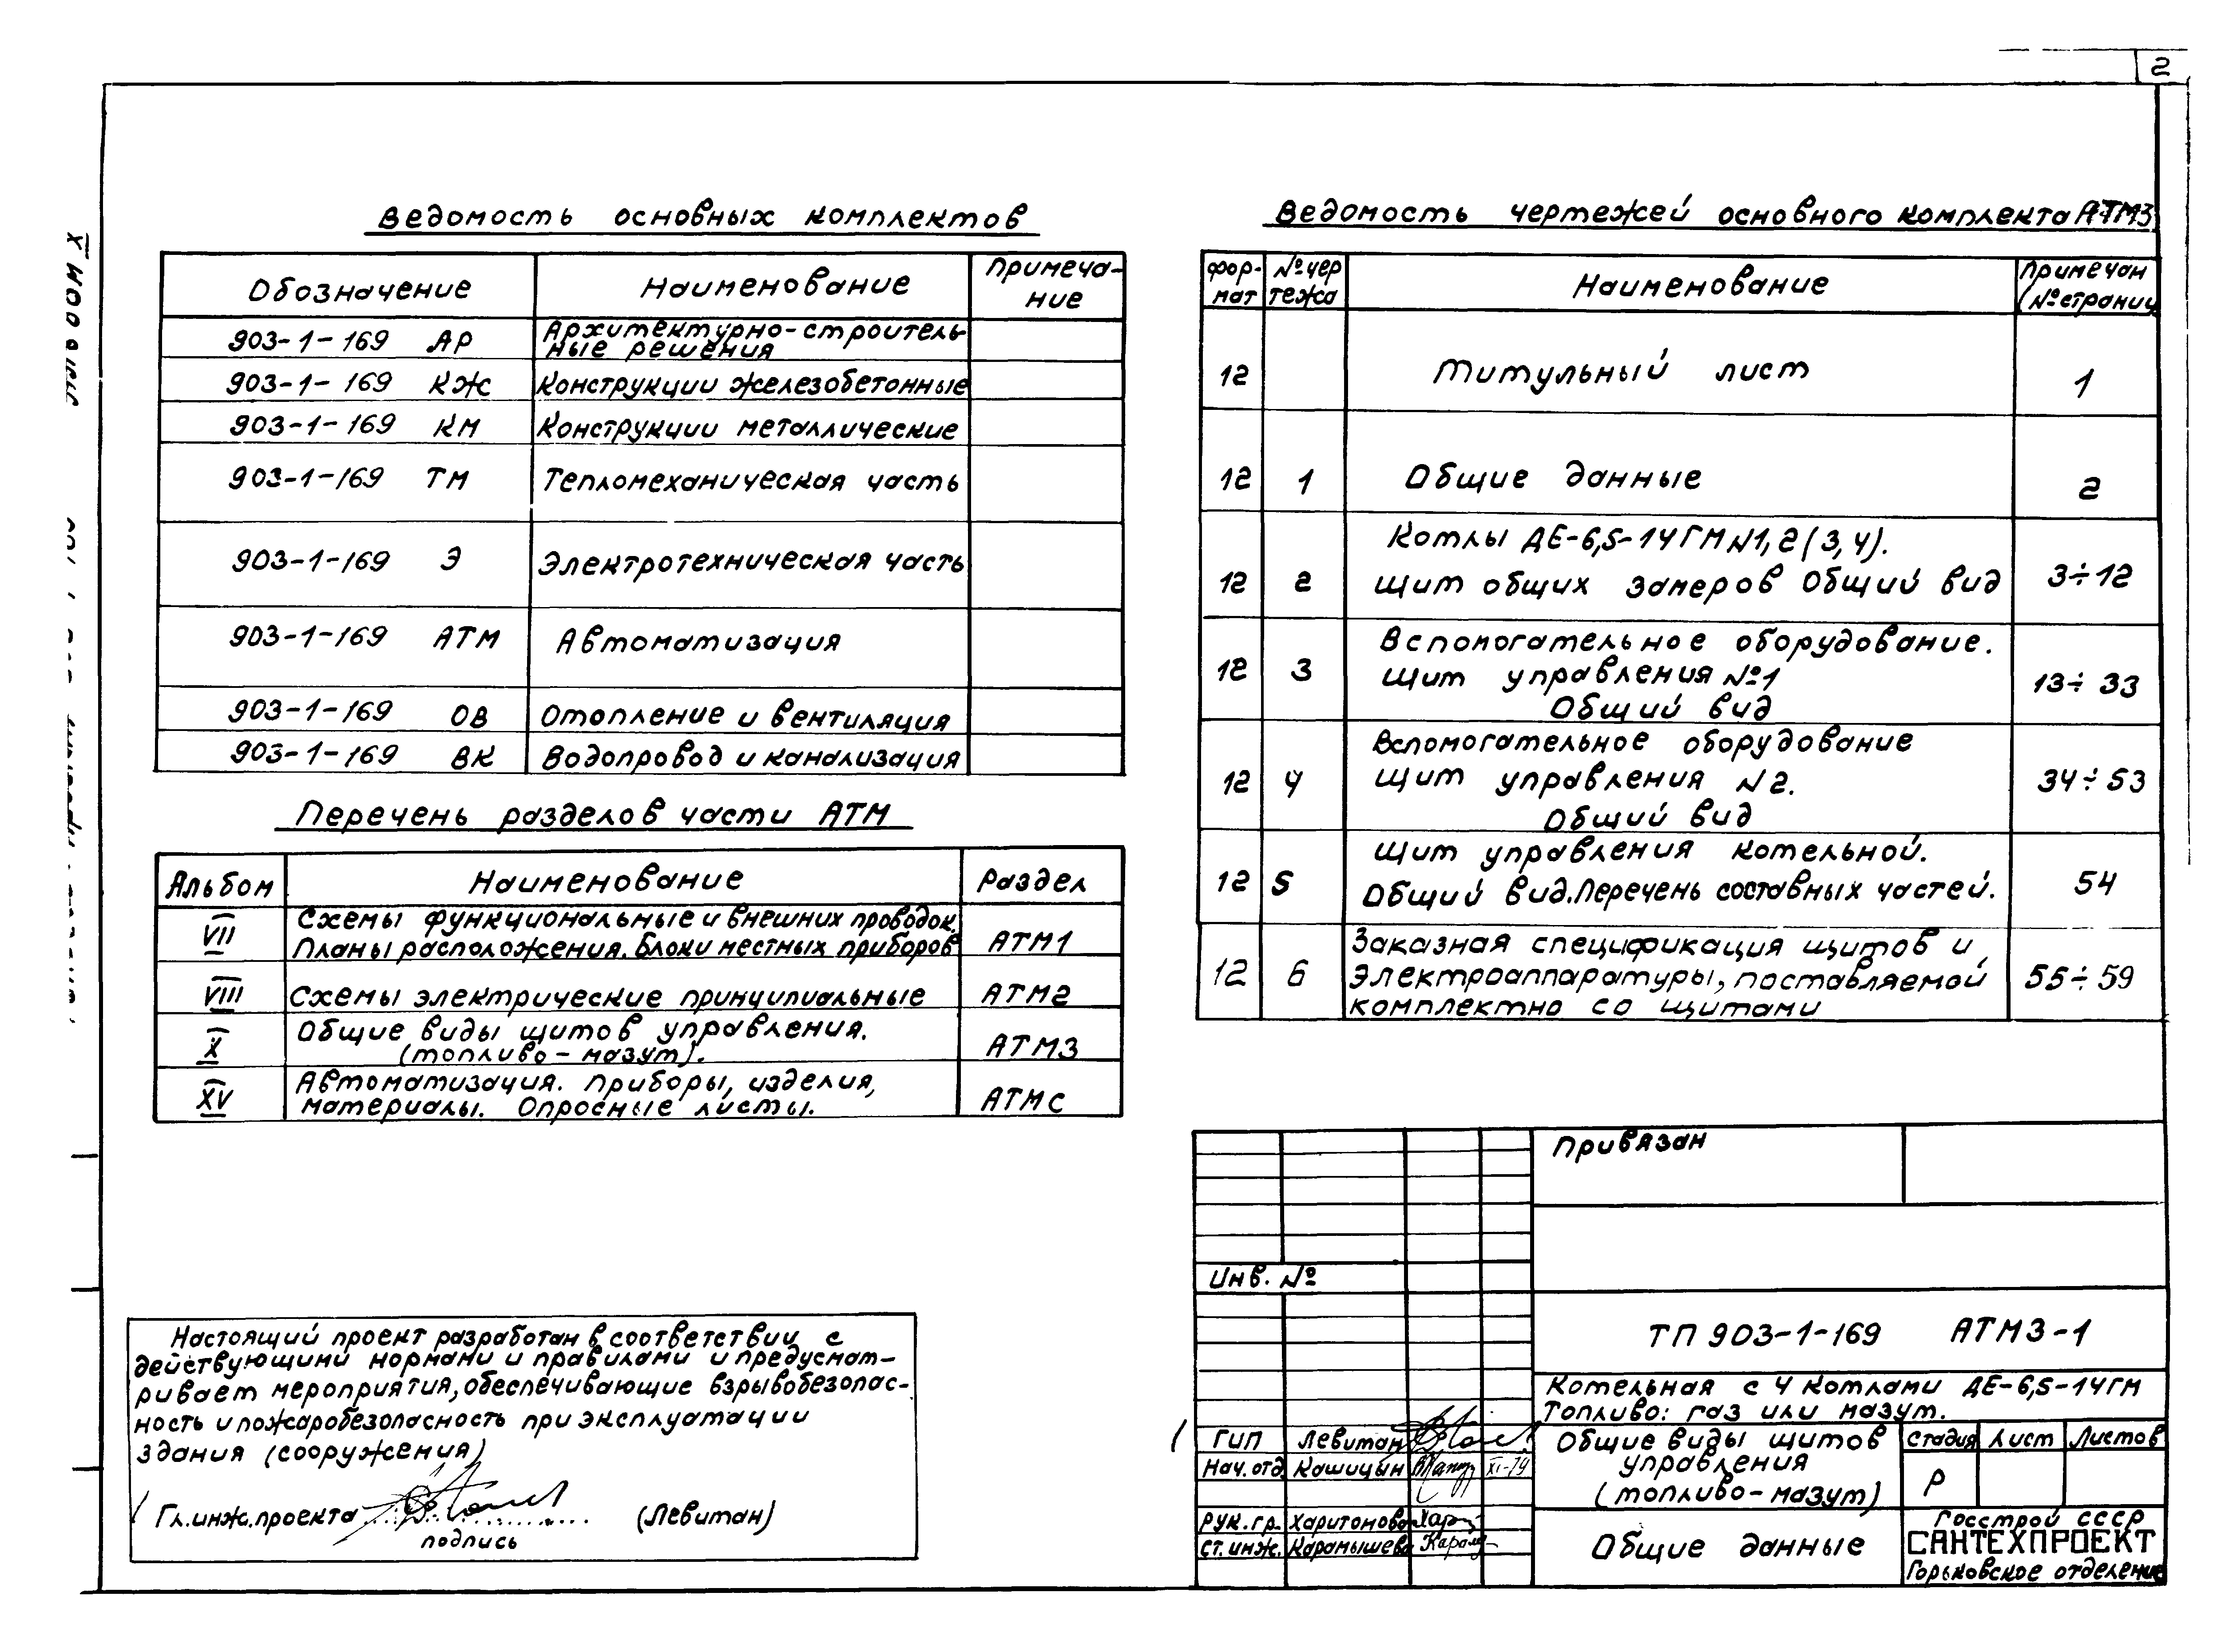 2
Ведомость основных комплектов
Обозначение Наименование Примеча-
ние
903-1-169 АР Архитектурно-строитель-
ные решения
903-1-169 КЖ Конструкции железобетонные
903-1-169 КМ Конструкции металлические
903-1-169 ТМ Тепломеханическая часть
903-1-169 Э Электротехническая часть
903-1-169 АТМ Автоматизация
903-1-169 ОВ Отопление и вентиляция
903-1-169 ВК Водопровод и канализация
Перечень разделов части АТМ
Альбом Наименование Раздел
VII Схемы функциональные и внешних проводок.
Планы расположения. Блоки местных приборов АТМ1
VIII Схемы электрические принципиальные АТМ2
X Общие виды щитов управления.
(топливо-мазут). АТМ3
XV Автоматизация. Приборы, изделия,
материалы. Опросные листы. АТМС
Настоящий проект разработан в соответствии с
действующими нормами и правилами и предусмат-
ривает мероприятия, обеспечивающие взрывобезопас-
ность и пожаробезопасность при эксплуатации
здания (сооружения)
Гл.инж.проекта (Левитан)
подпись
Ведомость чертежей основного комплекта АТМ3
фор-
мат №чер
тежа Наименование Примечан
(№страниц
12 Титульный лист 1
12 1 Общие данные 2
12 2 Котлы ДЕ-6,5-14ГМ N1,2(3,4).
Щит общих замеров Общий вид 3÷12
12 3 Вспомогательное оборудование.
Щит управления №1
Общий вид 13÷33
12 4 Вспомогательное оборудование
Щит управления N2.
Общий вид 34÷53
12 5 Щит управления котельной.
Общий вид.Перечень составных частей. 54
12 6 Заказная спецификация щитов и
электроаппаратуры, поставляемой
комплектно со щитами 55÷59
Привязан
Инв. №
ТП 903-1-169 АТМ3-1
Котельная с 4 котлами ДЕ-6,5-14ГМ
Топливо: газ или мазут.
ГИП Левитан
Нач.отд. Кашицын XI-79
Рук.гр. Харитонова
Ст.инж. Карамышева
Общие виды щитов
управления
(топливо-мазут)
Стадия Лист Листов
Р
Общие данные
Госстрой СССР
САНТЕХПРОЕКТ
Горьковское отделение